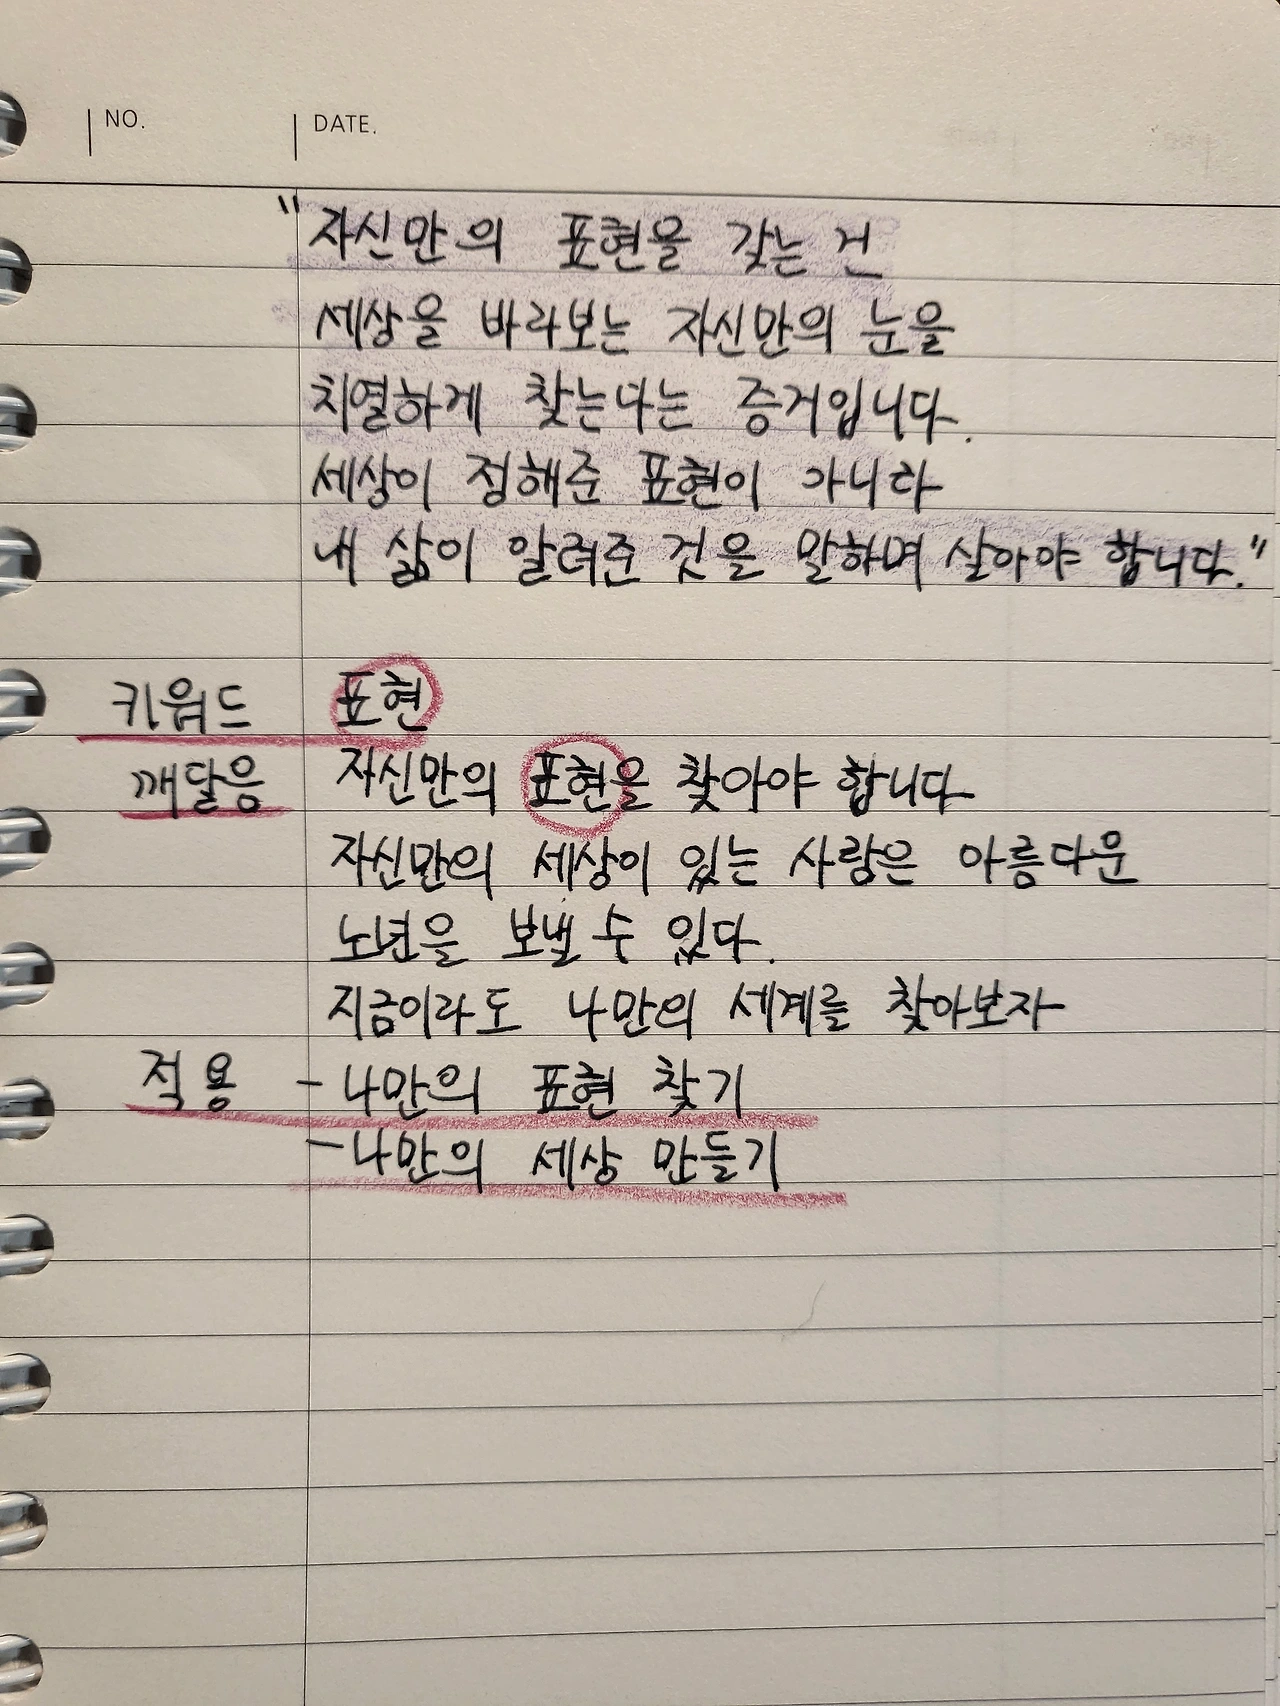 NO. DATE.
"자신만의 표현을 갖는 건
세상을 바라보는 자신만의 눈을
치열하게 찾는다는 증거입니다.
세상이 정해준 표현이 아니라
내 삶이 알려준 것을 말하며 살아야 합니다."
키워드 표현
깨달음 자신만의 표현을 찾아야 합니다
자신만의 세상이 있는 사람은 아름다운
노년을 보낼 수 있다.
지금이라도 나만의 세계를 찾아보자
적용 - 나만의 표현 찾기
- 나만의 세상 만들기